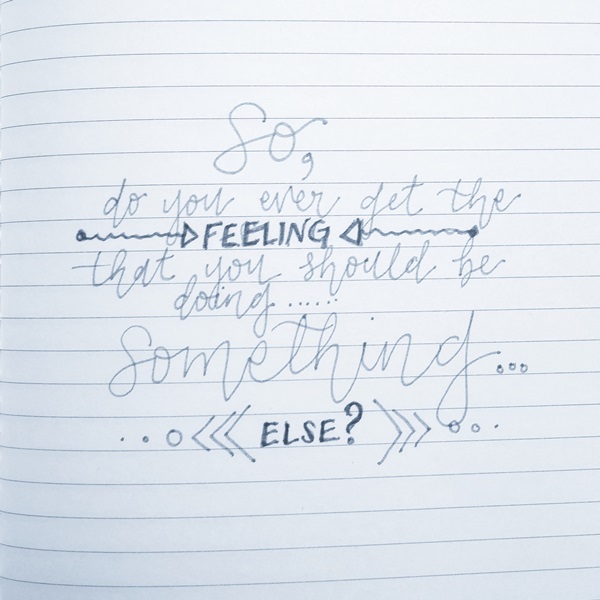 So,
do you ever get the
FEELING
that you should be
doing......
something...
ELSE?